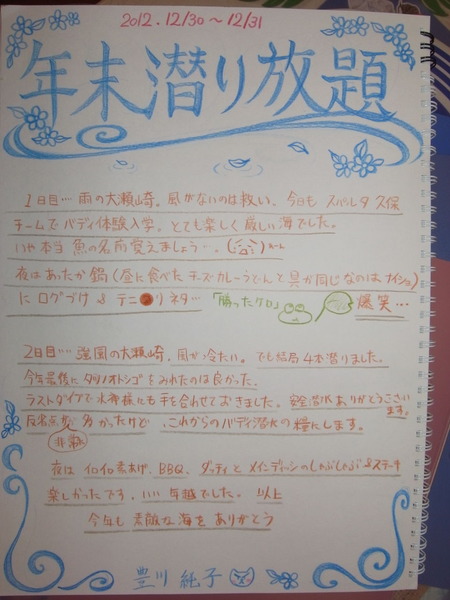 2012.12/30〜12/31
年末潜り放題
1日目… 雨の大瀬崎。風がないのは救い、今日も スパルタ 久保
チームでバディ体験入学。とても楽しく 厳しい海でした。
いや本当 魚の名前覚えましょう…。
夜はあったか鍋(昼に食べた チーズカレーうどんと具が同じなのは ナイショ)
に ログづけ & テニ リネタ… 「勝ったケロ」 爆笑…
2日目… 強風の大瀬崎。風が冷たい。でも結局4本潜りました。
今年最後に タツノオトシゴをみれたのは良かった。
ラストダイブで水神様にも手を合わせておきました。安全潜水ありがとうございます。
反省点が 多かったけど、これからのバディ潜水の 糧にします。
非常に
夜は イロイロ素あげ、BBQ、ダッティと メインディッシュのしゃぶしゃぶ&ステーキ
楽しかったです。いい年越でした。以上
今年も 素敵な海を ありがとう
豊川 純子